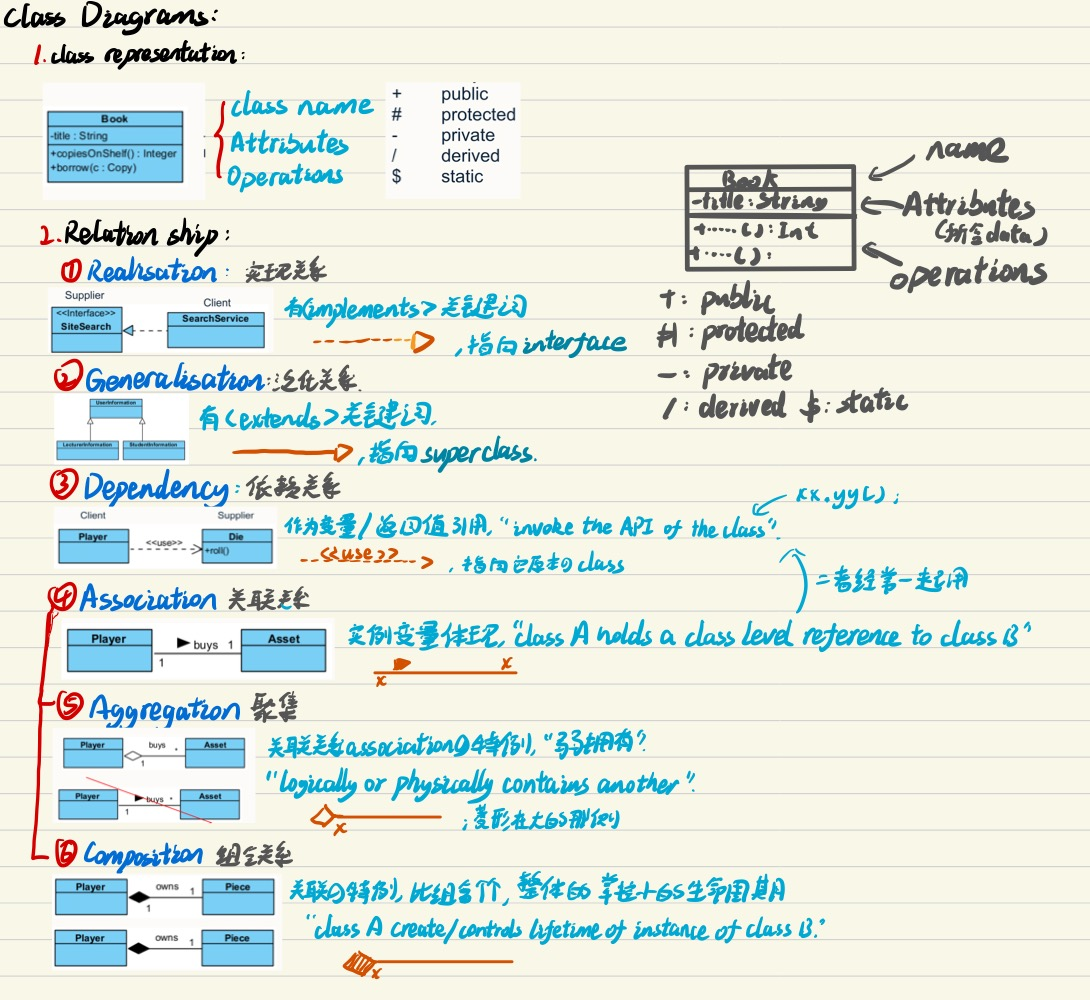 Class Diagrams:
1. class representation:
Book
-title : String
+copiesOnShelf() : Integer
+borrow(c : Copy)
class name
Attributes
Operations
+ public
# protected
- private
/ derived
$ static
name
Book
-title: String
+.....(): Int
+....():
Attributes
(所含data)
operations
+: public
#: protected
—: private
/: derived $: static
2. Relation ship:
① Realisation: 实现关系
Supplier
Client
<<Interface>>
SiteSearch
SearchService
有<implements>关键词
,指向interface
② Generalisation:泛化关系.
UserInformation
LecturerInformation
StudentInformation
有<extends>关键词.
,指向superclass.
③ Dependency: 依赖关系
Client
Supplier
Player
<<use>>
Die
+roll()
作为变量/返回值引用,"invoke the API of the class".
xx.yy();
<<use>>
,指向它原本の class
二者经常一起用
④ Association 关联关系
Player
buys 1
1
Asset
实例变量体现,"class A holds a class level reference to class B"
x
x
⑤ Aggregation 聚集
Player
buys
*
1
Asset
Player
buys *
1
Asset
关联关系associationの特例,"弱拥有".
"logically or physically contains another".
x
;菱形在大的那侧
⑥ Composition 组合关系
Player
owns
1
1
Piece
Player
owns
1
Piece
关联の特例,比组合,整体的掌控小的生命周期
"class A create/controls lifetime of instance of class B."
x